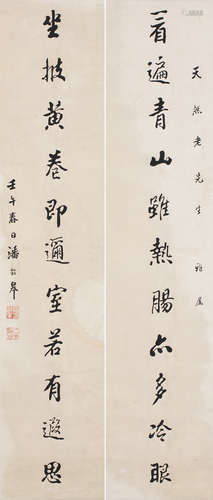 天然老先生雅屬
看遍青山雖熱腸亦多冷眼
坐披黃卷即邇室若有遐思
壬午春日潘齡皋